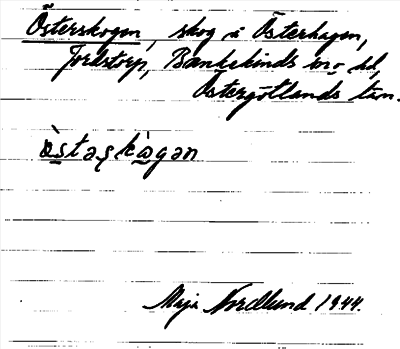 Österskogen, skog i Österhagen,
Jordstorp, Bankekinds sn o hd,
Östergötlands län.
ὸstəşkὼgən
Maja Nordlund 1944.